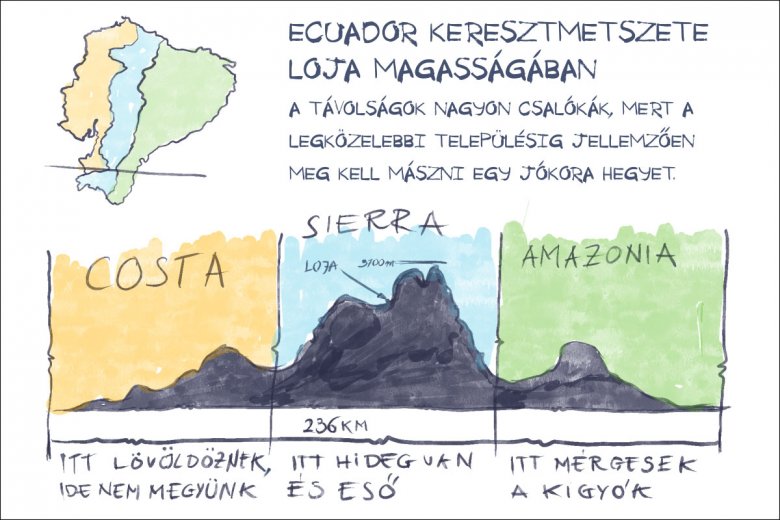 ECUADOR KERESZTMETSZETE
LOJA MAGASSÁGÁBAN
A TÁVOLSÁGOK NAGYON CSALÓKÁK, MERT A
LEGKÖZELEBBI TELEPÜLÉSIG JELLEMZŐEN
MEG KELL MÁSZNI EGY JÓKORA HEGYET.
SIERRA
COSTA
AMAZONIA
LOJA 3100m
236 KM
ITT LÖVÖLDÖZNEK,
IDE NEM MEGYÜNK
ITT HIDEG VAN
ÉS ESŐ
ITT MÉRGESEK
A KIGYÓK